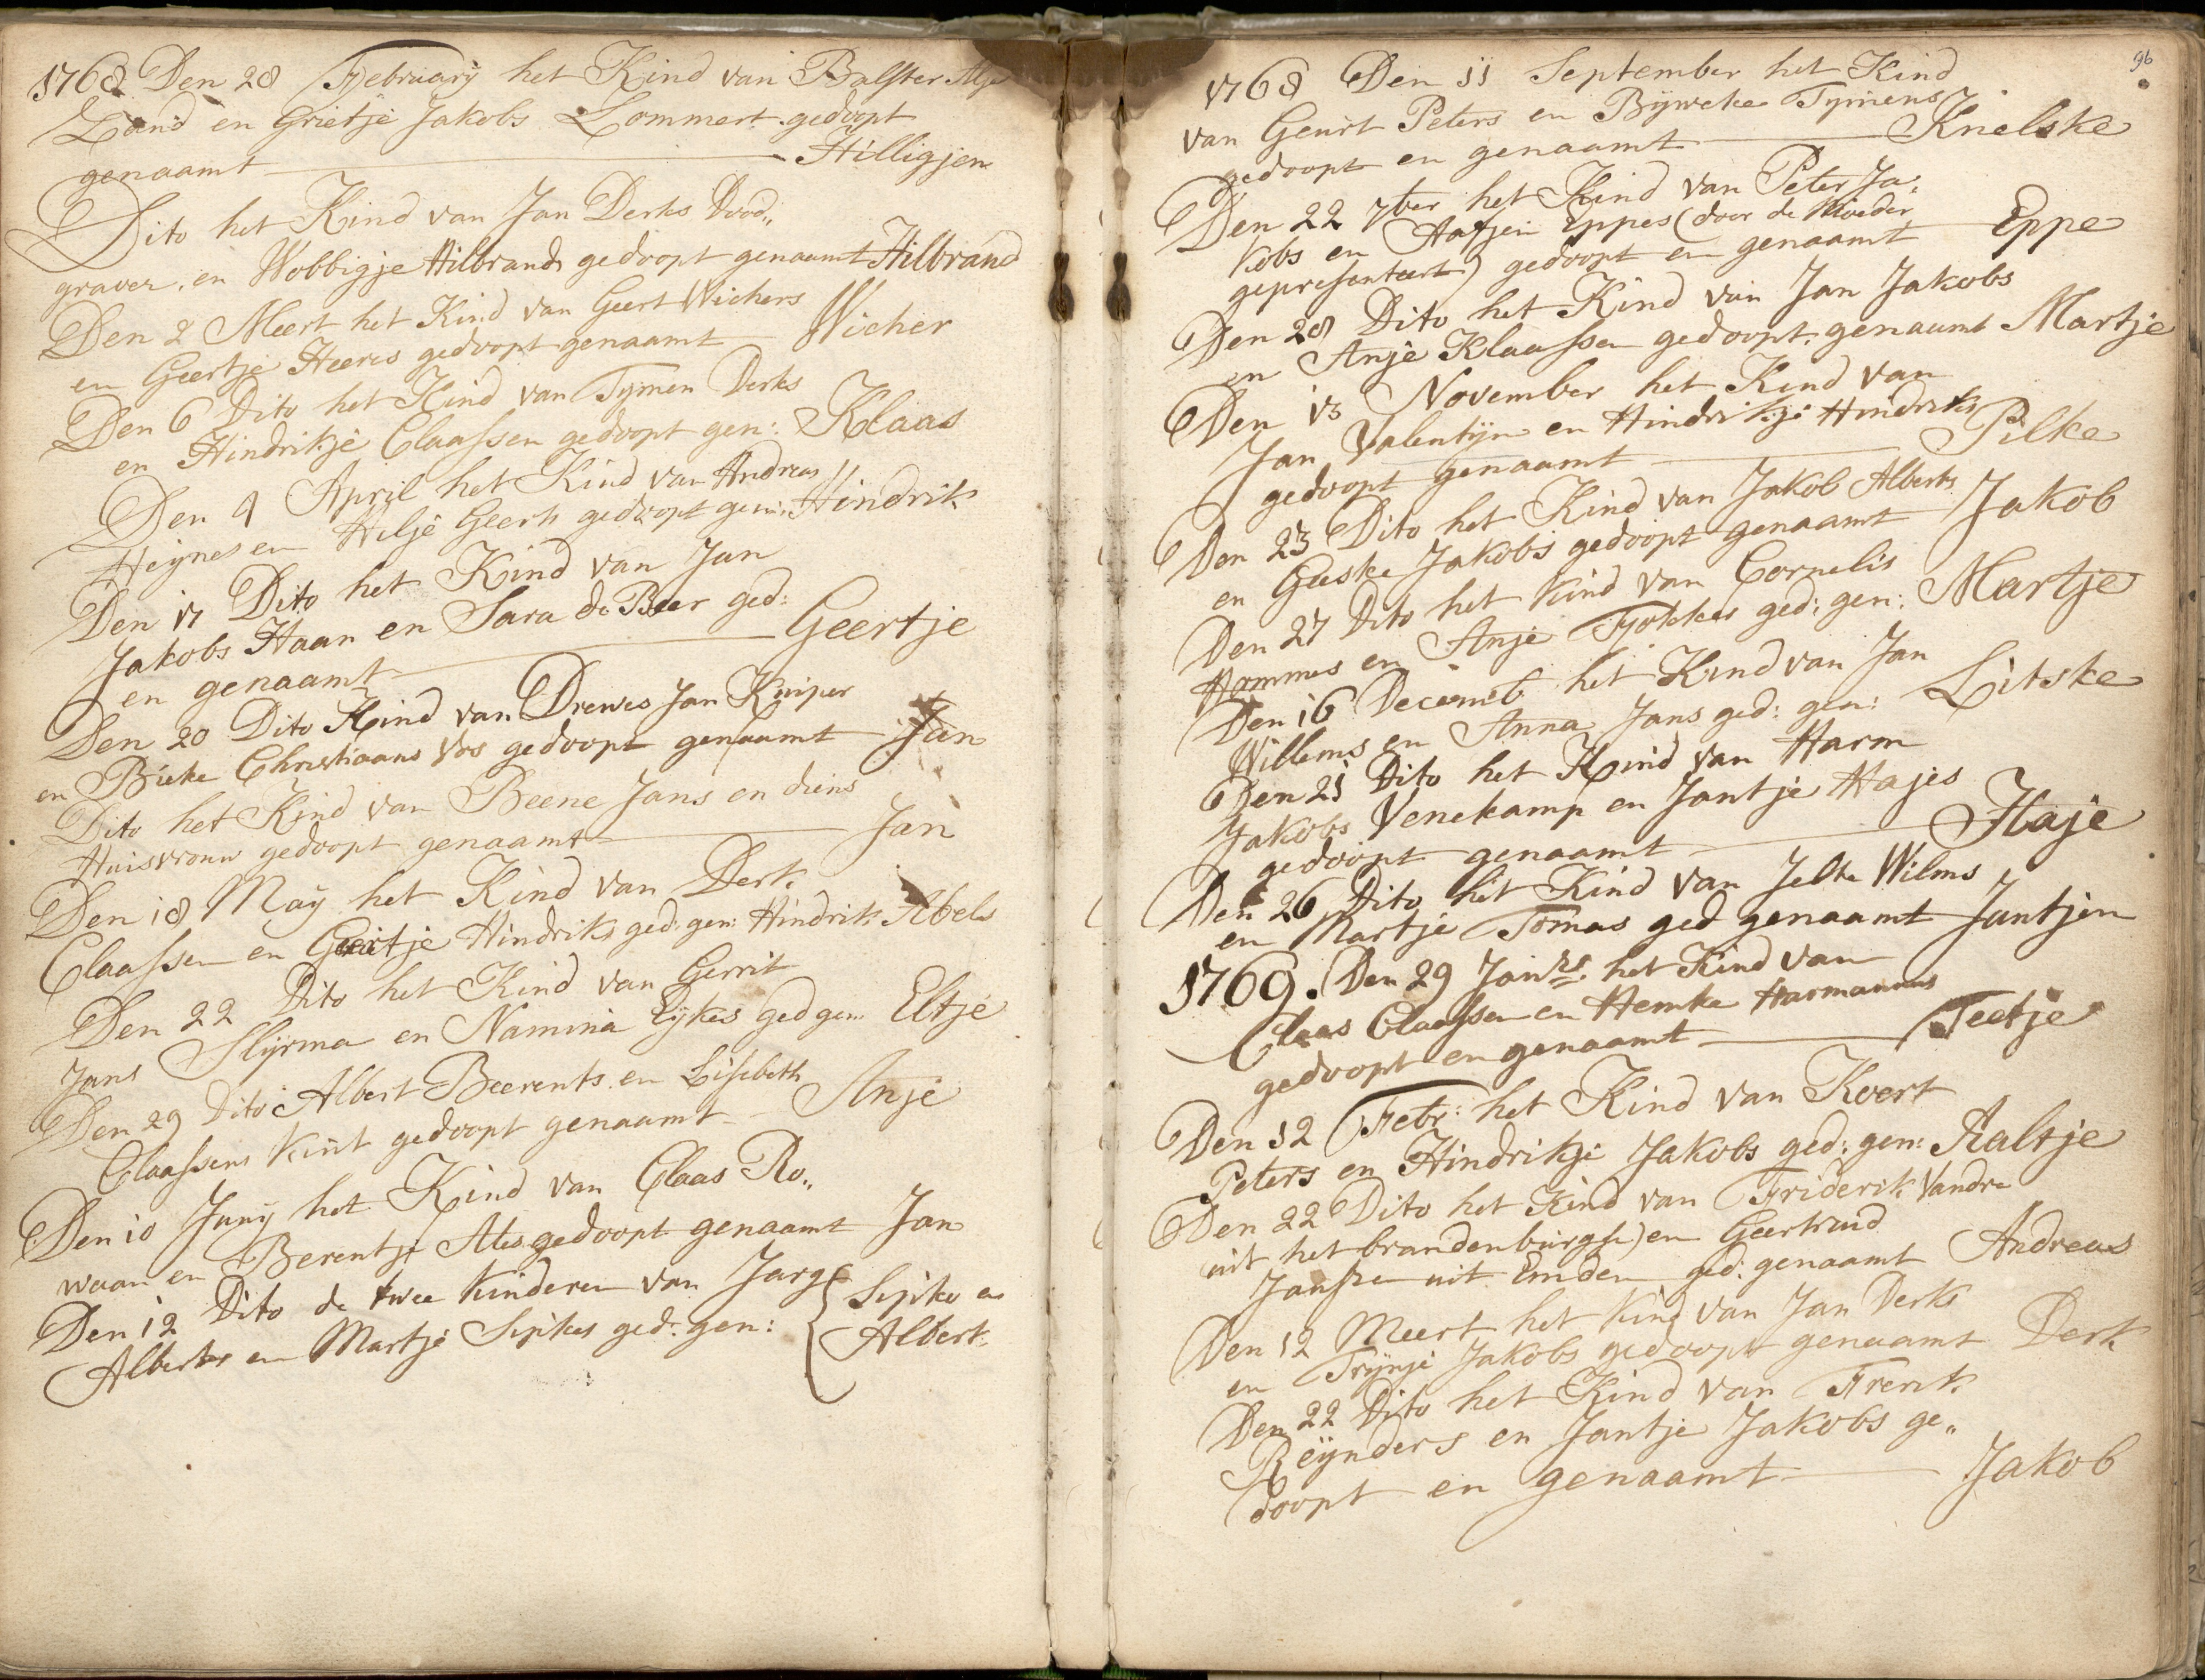 1768 Den 28 February het Kind van Balster
Land en Grietje Jakobs Lommert gedoopt
genaamt Hilligjen
Dito het Kind van Jan Derks Dood„
graver, en Wobbigje Hilbrands gedoopt genaamt Hilbrand
Den 2 Meert het Kind van Geert Wichers
en Geertje Heeres gedoopt genaamt Wicher
Den 6 Dito het Kind van Tymen Derks
en Hindrikje Claassen gedoopt gen: Klaas
Den 9 April het Kind van Andreas
Heijnes en Hilje Geerts gedoopt gen: Hindrik
Den 17 Dito het Kind van Jan
Jakobs Haan en Sara de Beer ged:
en genaamt Geertje
Den 20 Dito Kind van Drewes Jan Kuiper
en Bieke Christiaans Vos gedoopt genaamt Jan
Dito het Kind van Beene Jans en diens
Huisvrouw gedoopt genaamt Jan
Den 18 May het Kind van Derk
Claassen en Geertje Hindriks ged: gen: Hindrik Abels
Den 22 Dito het Kind van Gerrit
Jans Slijrma en Namina Eijkes ged gen: Eltje
Den 29 Dito Albert Beerents en Lisebeth
Claassens Kint gedoopt genaamt Anje
Den 10 Juny het Kind van Claas Ro„
waan en Berentje Ales gedoopt genaamt Jan
Den 12 Dito de twee kinderen van Jarg
Alberts en Martje Sipkes ged: gen: Sipko en
Albert
96
1768 Den 11 September het Kind
van Geurt Peters en Bijweke Tymens
gedoopt en genaamt Knelske
Den 22 7ber het Kind van Peter Ja„
kobs en Aafjen Eppes (door de Moeder
gepresenteert) gedoopt en genaamt Eppe
Den 28 Dito het Kind van Jan Jakobs
en Anje Klaassen gedoopt genaamt Martje
Den 13 November het Kind van
Jan Valentijn en Hindrikje Hindriks
gedoopt genaamt Pilke
Den 23 Dito het Kind van Jakob Alberts
en Geeske Jakobs gedoopt genaamt Jakob
Den 27 Dito het Kind van Cornelis
Hommes en Anje Fokkes ged: gen: Martje
Den 16 Decemb het Kind van Jan
Willems en Anna Jans ged: gen: Litske
Den 21 Dito het Kind van Harm
Jakobs Venekamp en Jantje Hajes
gedoopt genaamt Haje
Den 26 Dito het Kind van Jelte Wilms
en Martje Tomas ged genaamt Jantjen
1769. Den 29 Janrs. het Kind van
Claas Claassen en Hemke Harmannus
gedoopt en genaamt Teetje
Den 12 Febr: het Kind van Koert
Peters en Hindrikje Jakobs ged: gen: Aaltje
Den 22 Dito het Kind van Friderik Vandre
uit het brandenburgse) en Geertruid
Janssen uit Emden ged: genaamt Andreas
Den 12 Meert het Kind van Jan Derks
en Trijnje Jakobs gedoopt genaamt Derk
Den 22 Dito het Kind van Frerik
Reijnders en Jantje Jakobs ge„
doopt en genaamt Jakob